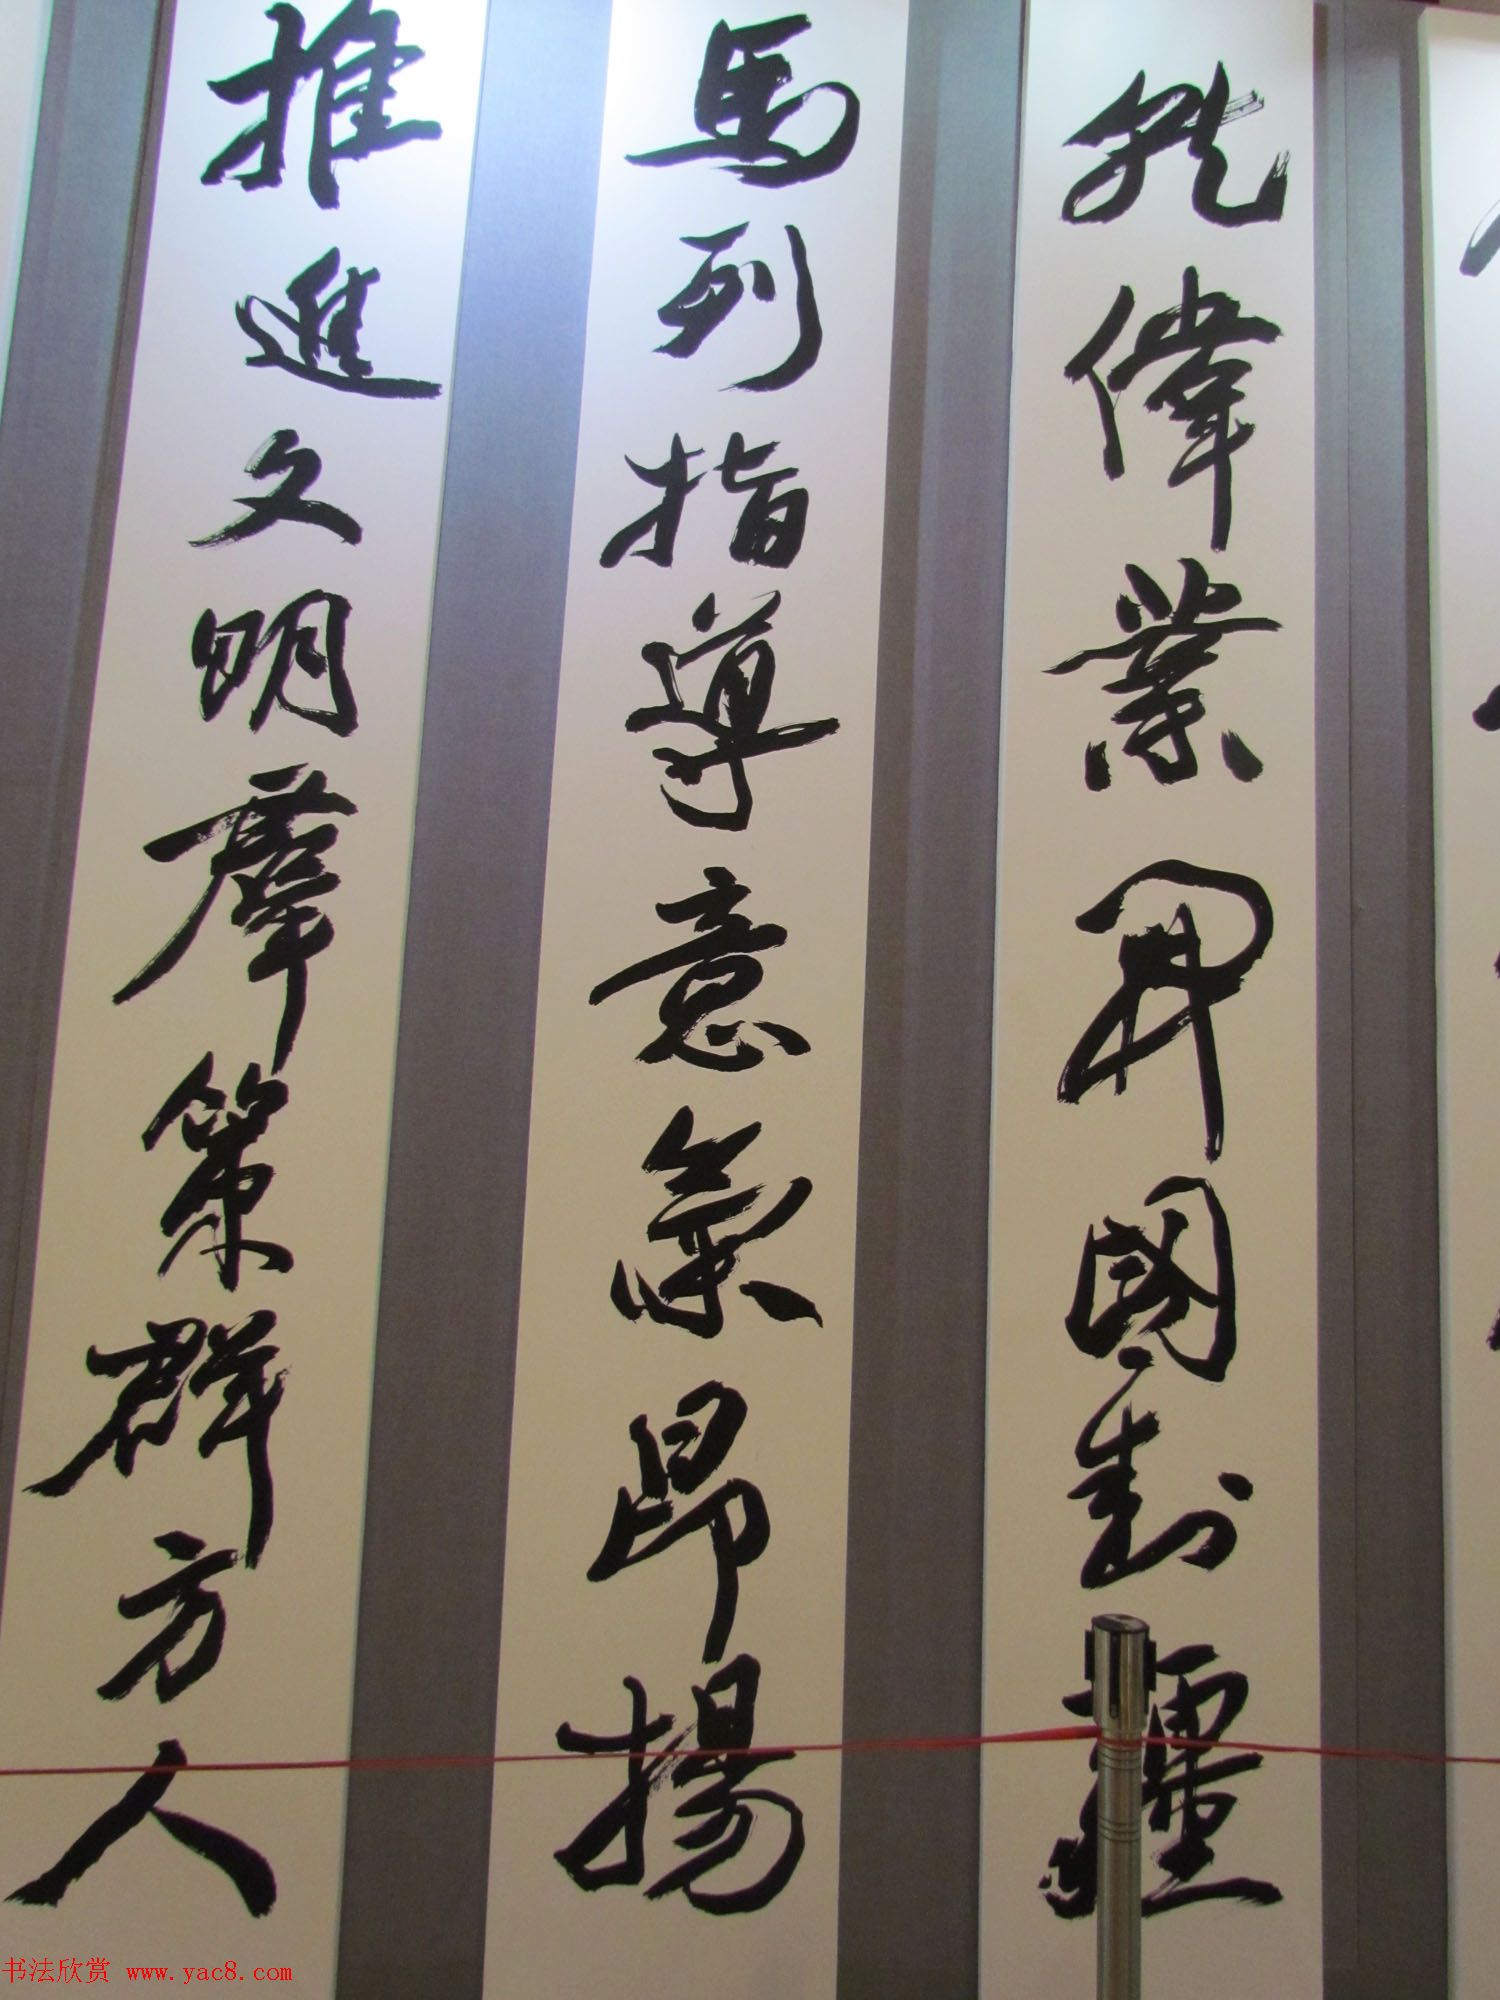 就偉業開國封疆
馬列指導意氣昂揚
推進文明羣策群方人
书法欣赏 www.yac8.com